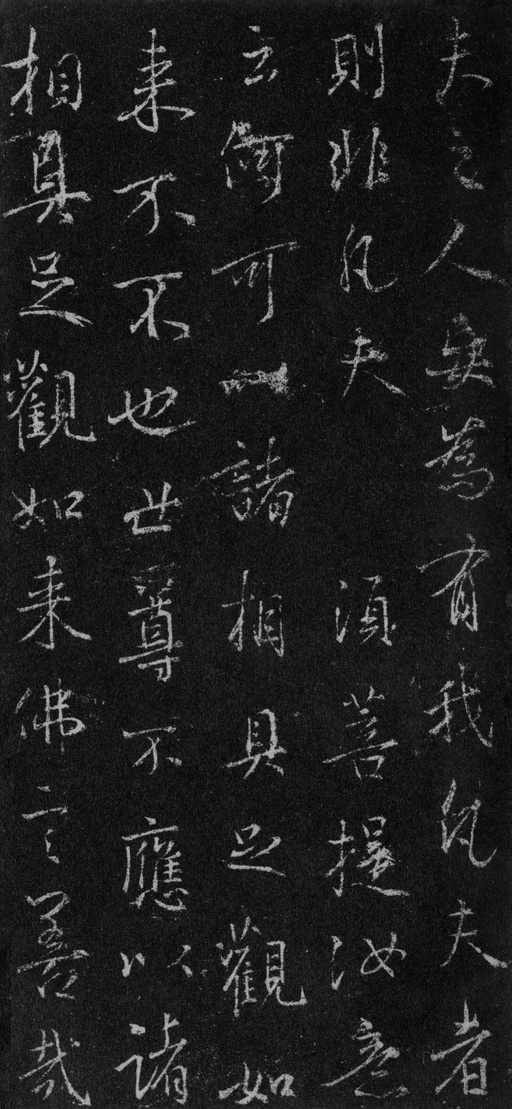 夫之人妄為有我凡夫者
則非凡夫 須菩提汝意
云何可以諸相具足觀如
来不不也世尊不應以諸
相具足觀如来佛言善哉